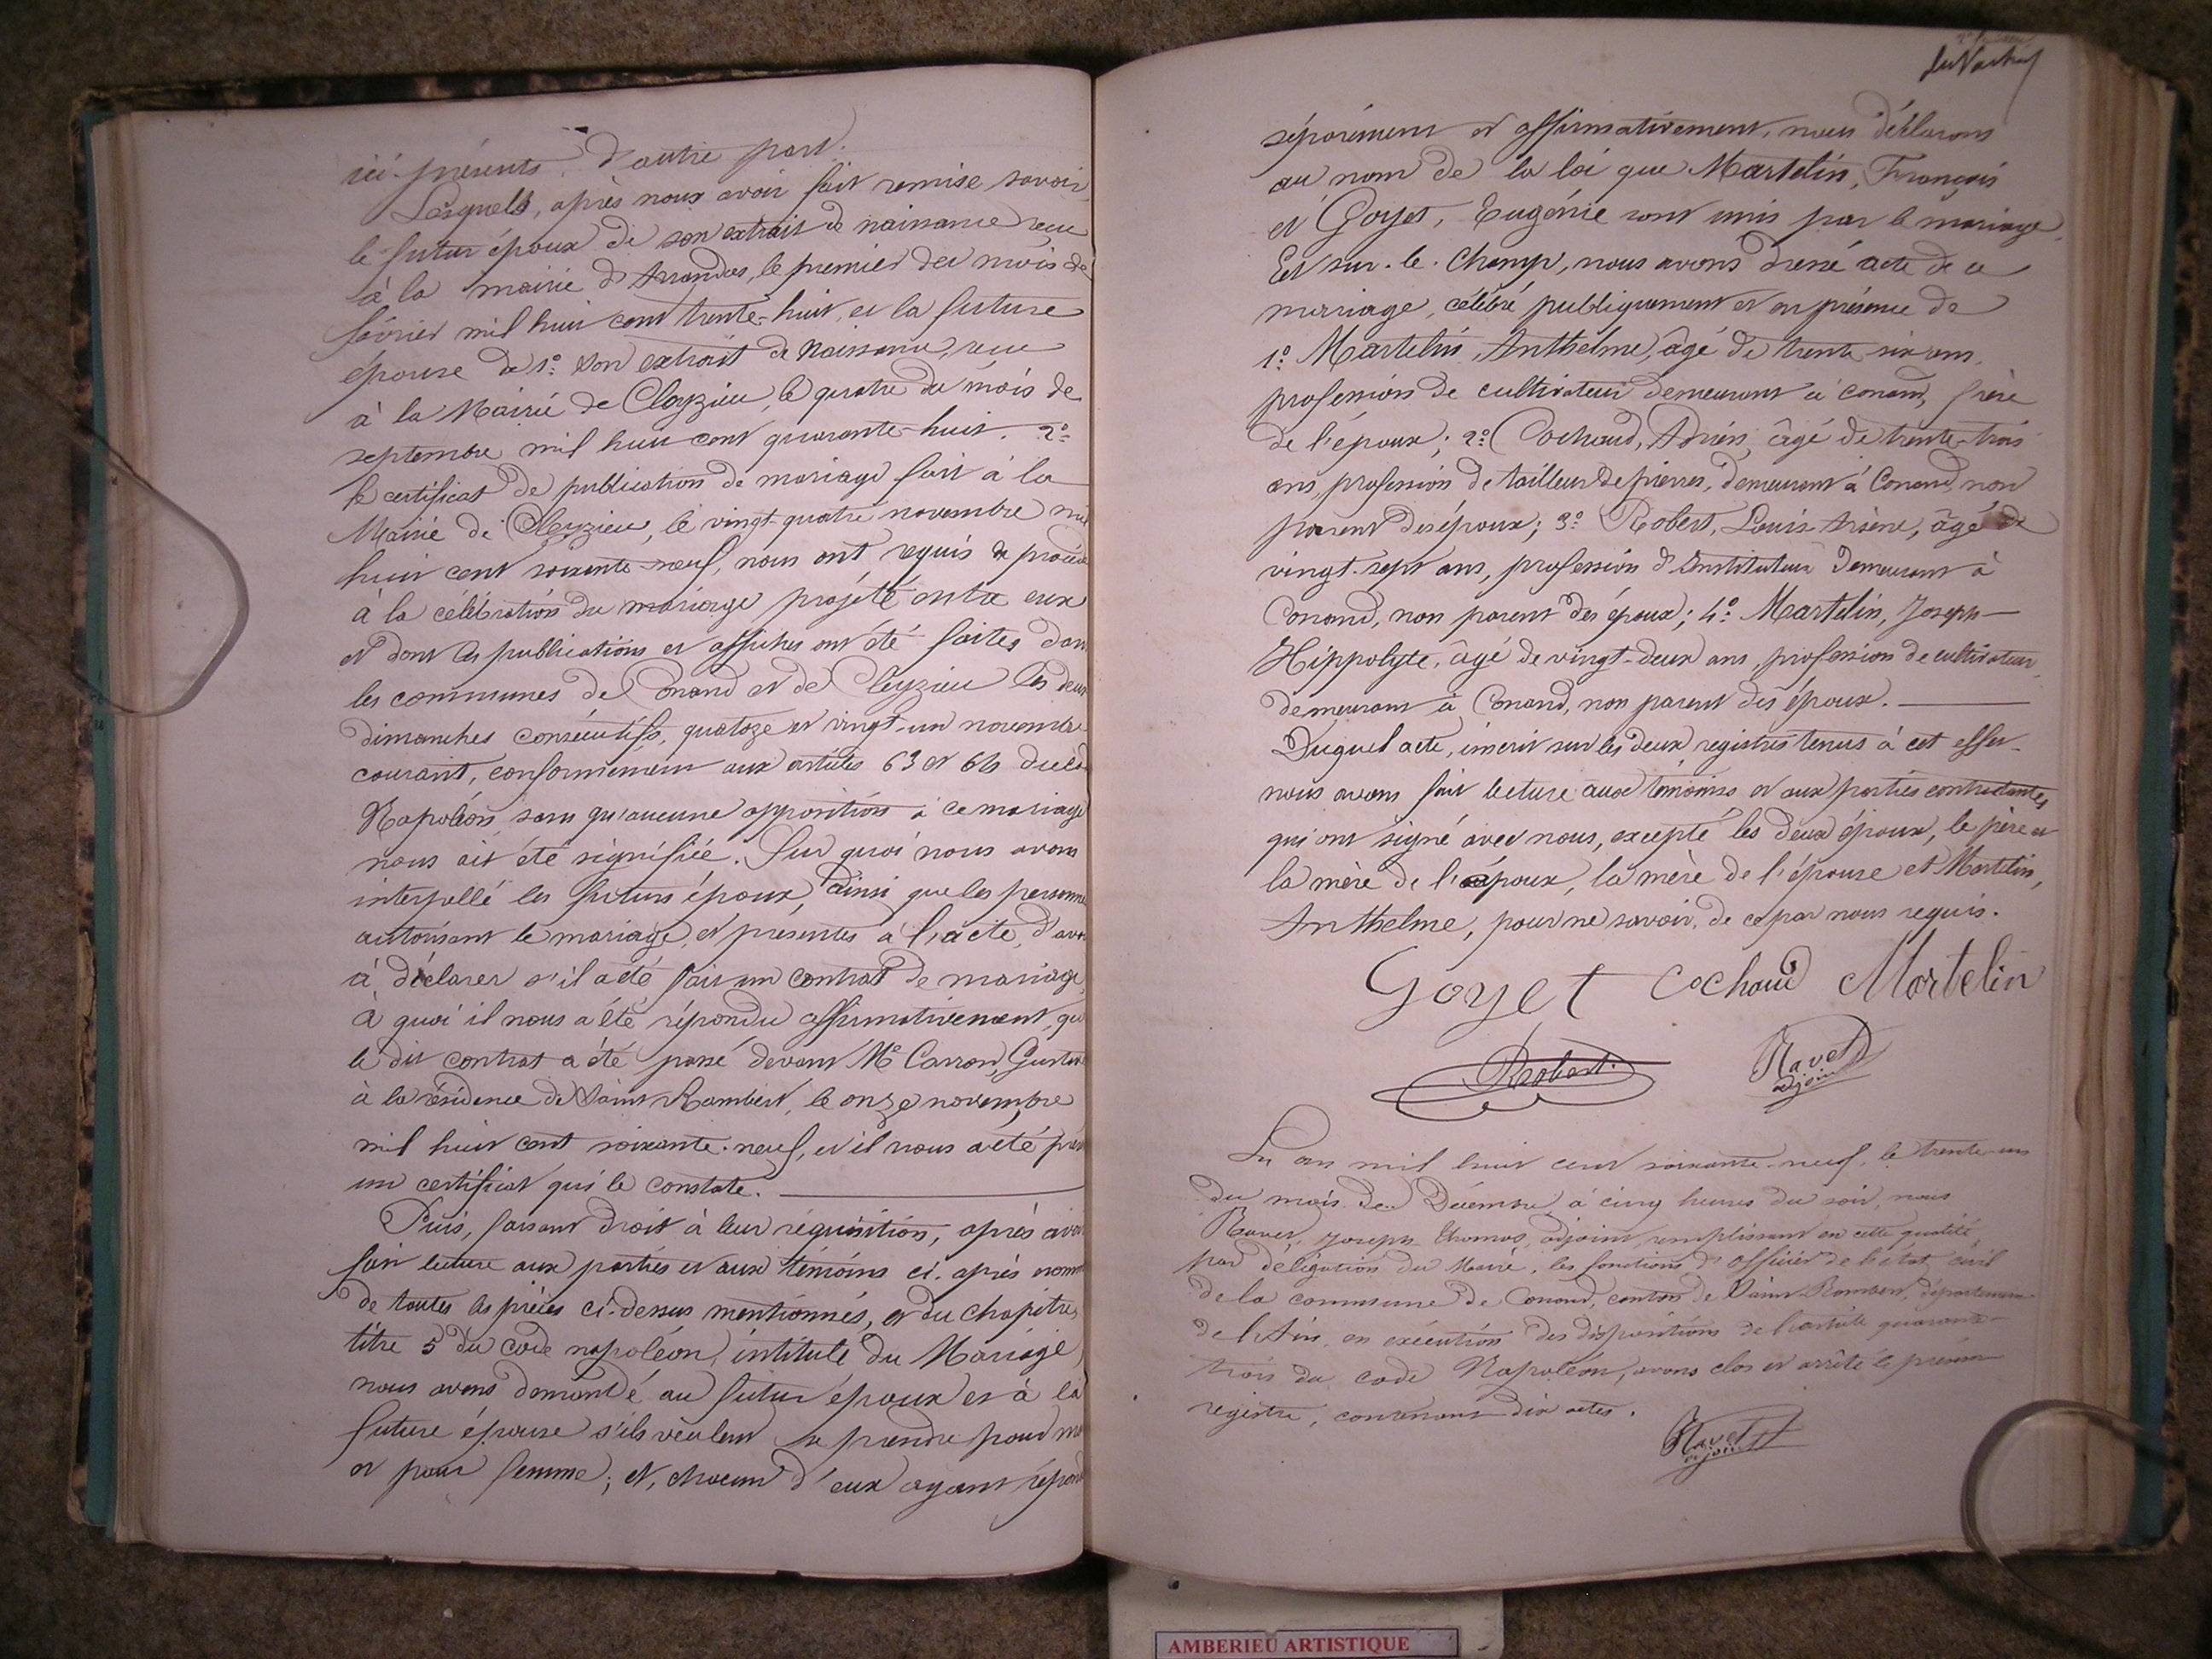 ici-présents, d'autre part.
Lesquels, après nous avoir fait remise savoir
le futur époux de son extrait de naissance reçu
à la mairie d'Arandas, le premier du mois de
février mil huit cent trente-huit, et la future
épouse de 1º son extrait de naissance, reçu
à la Mairie de Cleyzieu, le quatre du mois de
septembre mil huit cent quarante-huit. 2º
le certificat de publication de mariage fait à la
Mairie de Cleyzieu, le vingt-quatre novembre mil
huit cent soixante-neuf, nous ont requis de procéder
à la célébration du mariage projeté entre eux
et dont les publications et affiches ont été faites dans
les communes de Conand et de Cleyzieu les deux
dimanches consécutifs, quatoze et vingt-un novembre
courant, conformément aux articles 63 et 64 du Code
Napoléon, sans qu'aucune opposition à ce mariage
nous ait été signifiée. Sur quoi nous avons
interpellé les futurs époux, ainsi que les personnes
autorisant le mariage, et présentes à l'acte, d'avoir
à déclarer s'il a été fait un contrat de mariage,
à quoi il nous a été répondu affirmativement, que
le dit contrat a été passé devant Me Carron, Gustave
à la résidence de Saint-Rambert, le onze novembre
mil huit cent soixante-neuf, et il nous a été pré
un certificat qui le constate.
Puis, faisant droit à leur réquisition, après avoir
fait lecture aux parties et aux témoins ci-après nommés
de toutes les pièces ci-dessus mentionnés, et du chapitre
titre 5 du code napoléon, intitulé du Mariage,
nous avons demandé au futur époux et à la
future épouse s'ils veulent se prendre pour mari
et pour femme; et, chacun d'eux ayant répondu
séparément et affirmativement, nous déclarons
au nom de la loi que Martelin, François
et Goyet, Eugénie sont unis par le mariage.
Et sur-le-champ, nous avons dressé acte de ce
mariage, célébré publiquement et en présence de
1º Martelin, Anthelme, âgé de trente six ans,
profession de cultivateur demeurant à Conand, frère
de l'époux; 2º Cochaud, Adrien, âgé de trente-trois
ans, profession de tailleur de pierres, demeurant à Conand, non
parent des époux; 3º Robert, Louis-Arsène, âgé de
vingt-sept ans, profession d'Instituteur demeurant à
Conand, non parent des époux; 4º Martelin, Joseph-
Hippolyte, âgé de vingt-deux ans, profession de cultivateur,
demeurant à Conand, non parent des époux.
Duquel acte, inscrit sur les deux registres tenus à cet effet
nous avons fait lecture aux témoins et aux parties contractantes
qui ont signé avec nous, excepté les deux époux, le père et
la mère de l'époux, la mère de l'épouse et Martelin,
Anthelme, pour ne savoir, de ce par nous requis.
Goyet Cochaud Martelin
Robert Ravet
adjoint
L'an mil huit cent soixante-neuf, le trente-un
du mois de Décembre à cinq heures du soir, nous
Ravet, Joseph Thomas, adjoint, remplissant en cette qualité,
par délégation du Maire, les fonctions d'officier de l'état civil
de la commune de Conand, canton de Saint-Rambert, département
de l'Ain, en exécution des dispositions de l'article quarante-
trois du code Napoléon, avons clos et arrêté le présent
registre, contenant dix actes.
Ravet
adjoint
AMBERIEU ARTISTIQUE